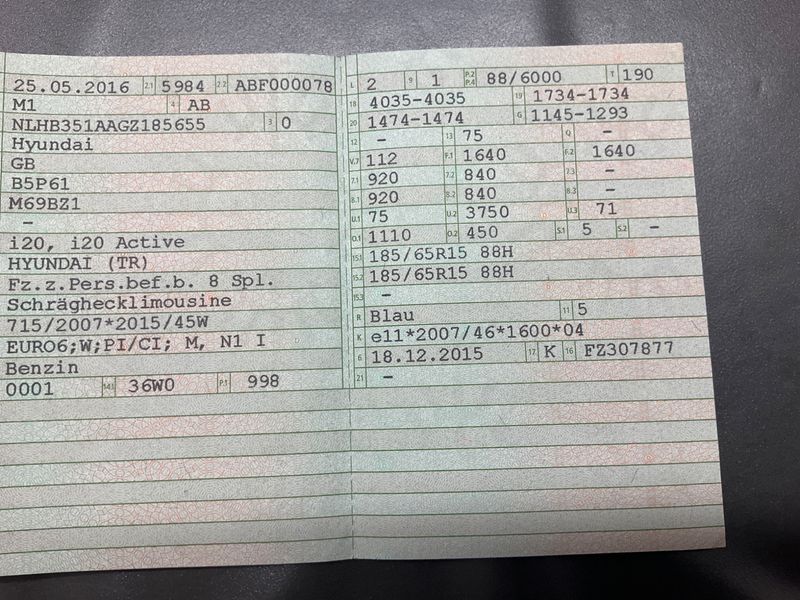 25.05.2016 2.1 5984 2.2 ABF000078
M1 4 AB
NLHB351AAGZ185655 3 0
Hyundai
GB
B5P61
M69BZ1
–
i20, i20 Active
HYUNDAI (TR)
Fz.z.Pers.bef.b. 8 Spl.
Schräghecklimousine
715/2007*2015/45W
EURO6;W;PI/CI; M, N1 I
Benzin
0001 14.1 36W0 P.1 998
L 2 9 1 P.2 P.4 88/6000 T 190
18 4035-4035 19 1734-1734
20 1474-1474 G 1145-1293
12 – 13 75 Q –
V.7 112 F.1 1640 F.2 1640
7.1 920 7.2 840 7.3 –
8.1 920 8.2 840 8.3 –
U.1 75 U.2 3750 U.3 71
O.1 1110 O.2 450 S.1 5 S.2 –
15.1 185/65R15 88H
15.2 185/65R15 88H
15.3 –
R Blau 11 5
K e11*2007/46*1600*04
6 18.12.2015 17 K 16 FZ307877
21 –